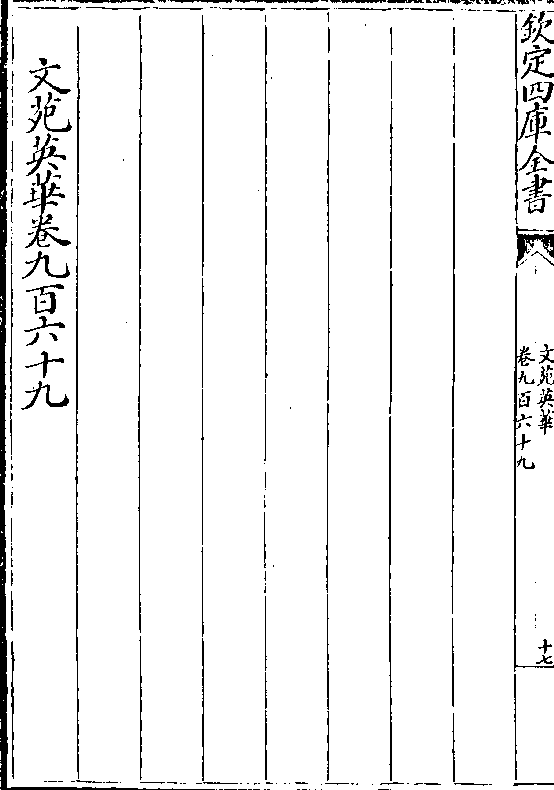 欽定四庫全書
文苑英華
卷九百六十九
十七
文苑英華卷九百六十九